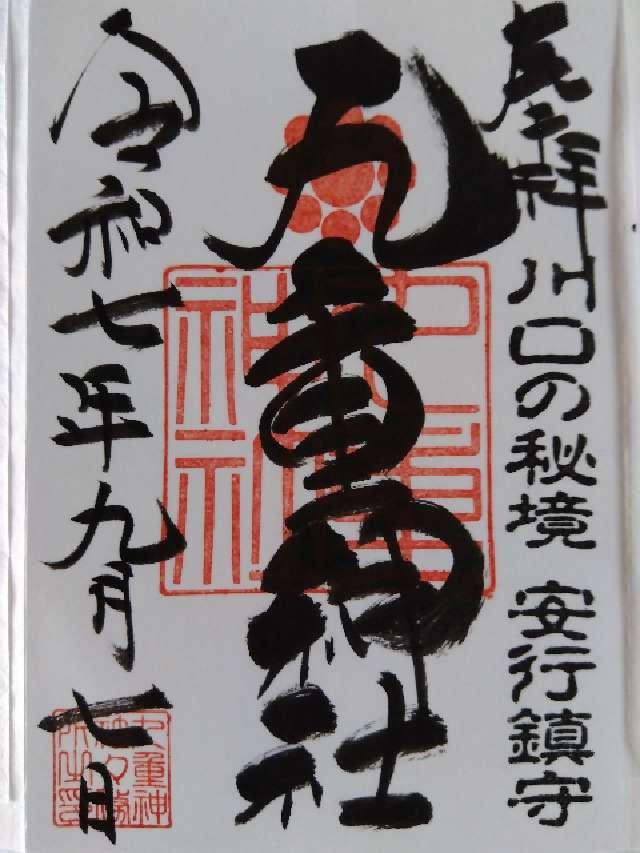 奉拝
川口の秘境 安行鎮守
九重神社
令和七年九月七日
九重神社